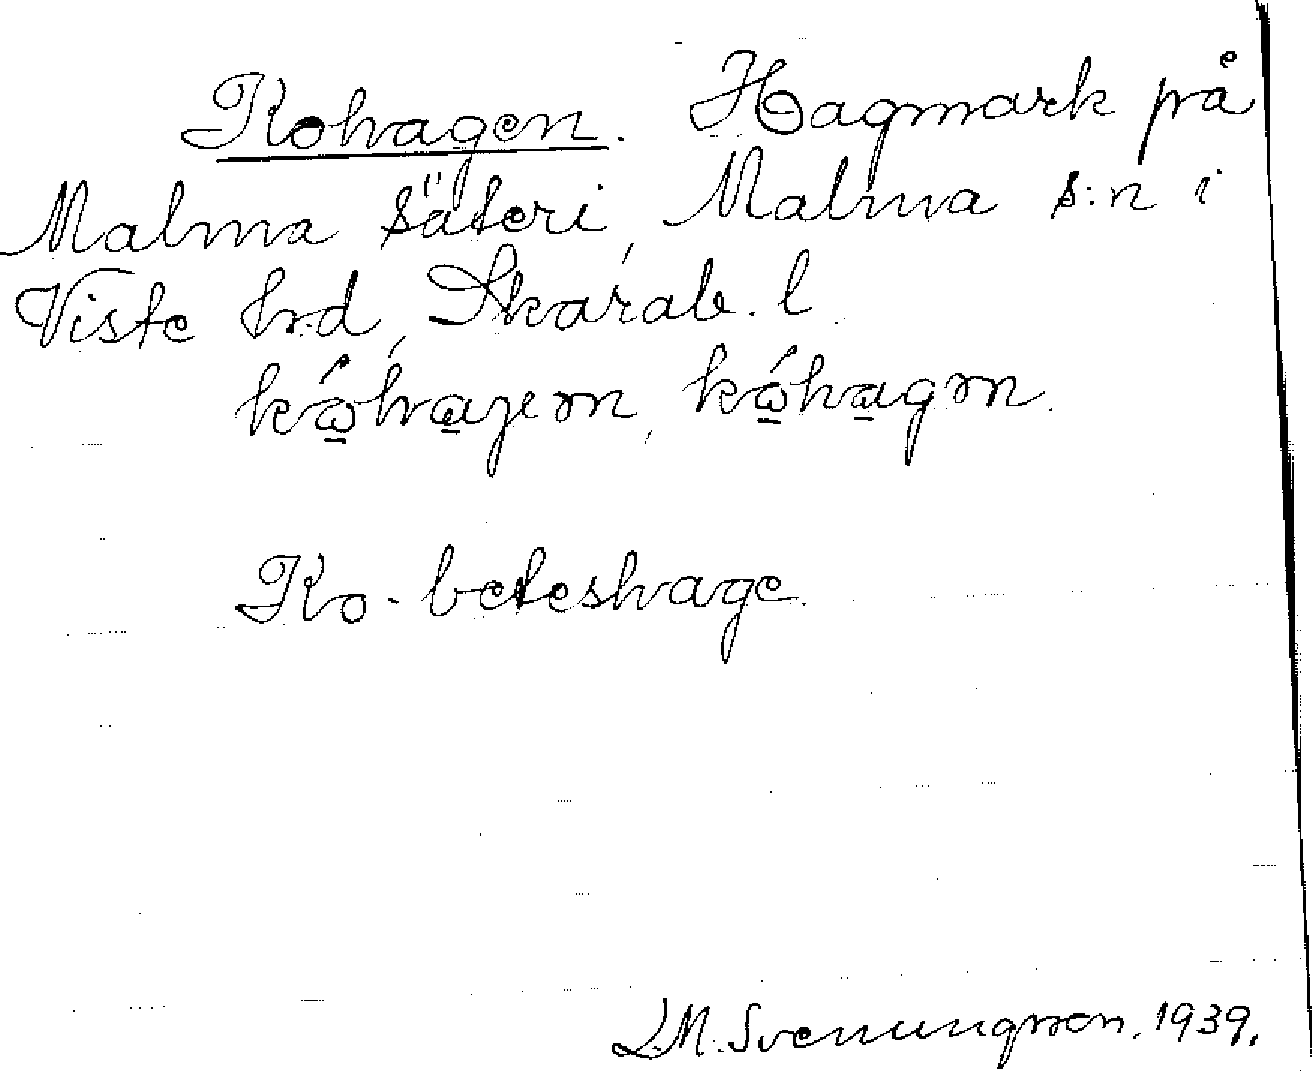 Kohagen. Hagmark på
Malma säteri, Malma s:n i
Viste hrd, Skarab. l.
kóhajem, kóhagm.
Ko-beteshage.
L.M. Svenungsson. 1939.